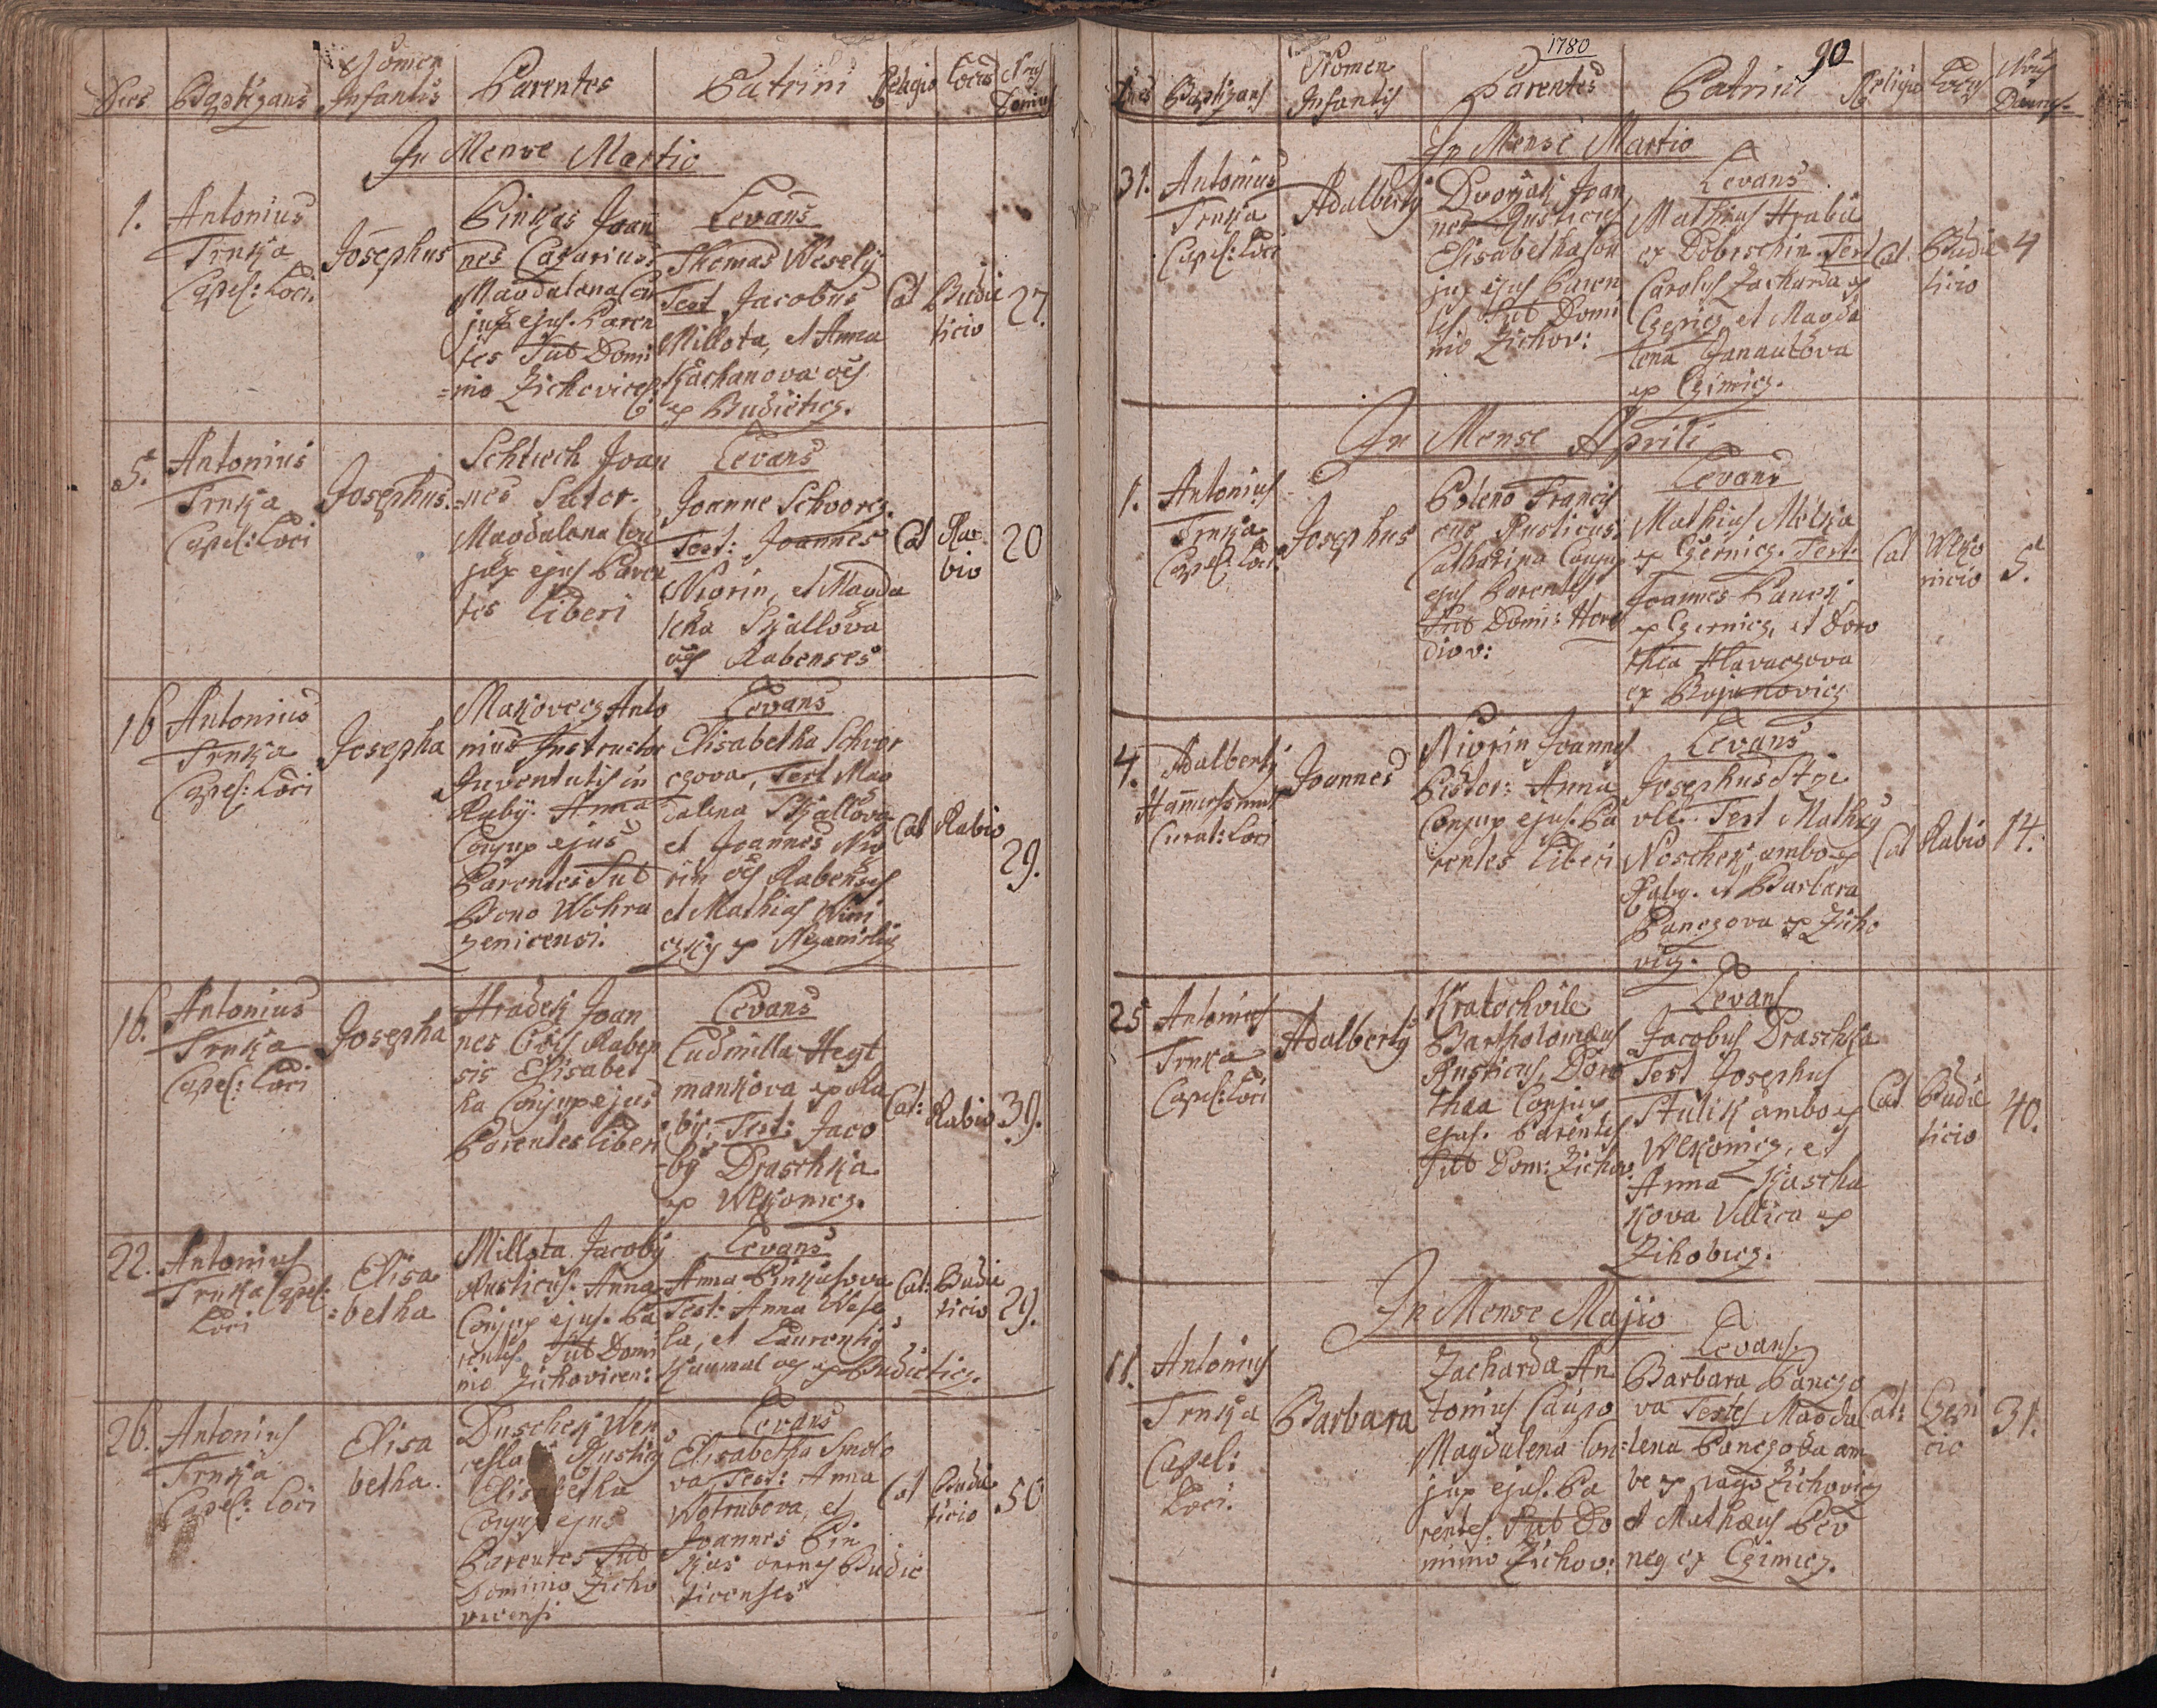 Dies Baptizans Nomen Infantis Parentes Patrini Religio Locus Nrus Domus
In Mense Martio
1. Antonius
Trnka
Capel: Loci
Josephus
Pinkas Joan
nes Casarius
Magdalena Con
jux ejus. Paren
tes Sub Domi
=nio Zichovicen
Levans
Thomas Wesely
Test Jacobus
Millota, et Anna
Kachanova oes
ex Budieticz.
Cat
Budie
ticio
27.
5. Antonius
Trnka
Capel: Loci
Josephus.
Joan
=nes Sutor.
Magdalena Con
jux ejus Paren
tes Liberi
Levans
Joanne Schvorcz.
Test: Joannes
Niorin, et Magda
lena Skallova
oes Rabenses
Cat
Ra
bio
20
16 Antonius
Trnka
Capel: Loci
Josepha
Makovecz Anto
nius Instructor
Juventutis in
Raby. Anna
Conjux ejus
Parentes Sub
Bono Wohra
zenicensi.
Levans
Elisabetha Schvor
czova, Test Mag
dalena Skallova
et Joannes Nio
rin oes Rabenses
et Mathias Wim
czky ex
Cat
Rabio
29.
16. Antonius
Trnka
Capel: Loci
Josepha
Hradek Joan
nes Civis Raben
sis Elisabet
ha Conjux ejus
Parentes Liberi
Levans
Ludmilla Heyt
mankova ex Ra
by, Test: Jaco
=by Draschka
ex Wlkonicz.
Cat:
Rabio
39.
22. Antonius
Trnka Capel:
Loci
Elisa
=betha
Millota Jacoby
Rusticus. Anna
Conjux ejus. Pa
rentes Sub Domi
nio Zichovicen:
Levans
Anna Pinkasova
Test: Anna Wese
la, et Laurentig
Kaumal oes ex Budieticz.
Cat:
Budie
ticio
29.
26. Antonius
Trnka
Capel: Loci
Elisa
betha.
Duschek Wen
cesla Rusticg
Elisabetha
Conjux ejus
Parentes Sub
Dominio Zicho
vicensi
Levans
Elisabetha Smolo
va Test: Anna
Wotrubova, et
Joannes Pin
kas omnes Budie
ticenses
Cat
Budie
ticio
50
1780
90
Dies Baptizans Nomen Infantis Parentes Patrini Religio Locus Nrus Domus
In Mense Martio
31. Antonius
Trnka
Capel: Loci
Adalbertg
Dvorzak Joan
nes Rusticus
Elisabetha Con
jux ejus Paren
tes Sub Domi
nio Zichov:
Levans
Mathias Hraba
ex Dobrschin Test
Carolus Zacharda ex
Czepicz, et Magda
lena Janautova
ex Czimicz.
Cat.
Budie
ticio
4
In Mense Aprili
1. Antonius
Trnka
Capel: Loci
Josephus
Poleno Francis
cus Rusticus.
Catharina Conjux
ejus Parentes
Sub Domi: Hora
diov:
Levans
Mathias Milka
ex Czernicz. Test.
Joannes Panek
ex Czernicz, et Doro
thea Hlavaczova
ex Bojanovicz
Cat
Wlko
nicio
5.
4. Adalbertg
Curat: Loci
Joannes
Niorin Joannes
Pistor: Anna
Conjux ejus. Pa
rentes Liberi
Levans
Josephus
Test Mathig
Noschek, ambo ex
Raby. et Barbara
Panczova ex Zicho
vicz.
Cat
Rabio
14.
25 Antonius
Trnka
Capel: Loci
Adalbertg
Kratochvile
Bartholomaeus
Rusticus, Doro
thea Conjux
ejus. Parentes
Sub Dom: Zichov:
Levans
Jacobus Draschka
Test Josephus
Stulik ambo ex
Wlkonicz, et
Anna Kascha
kova Villica ex
Zihobicz.
Cat
Budie
ticio
40.
In Mense Majio
11. Antonius
Trnka
Capel:
Loci.
Barbara
Zacharda An
tonius Caupo
Magdalena Con=
jux ejus. Pa
rentes. Sub Do
minio Zichov:
Levans.
Barbara Panczo
va Testes Magda
lena Panczova am
bo ex pago Zichovicz
et Mathaeus Pev
neg ex Czimicz.
Cat:
Czepi
cio
31.